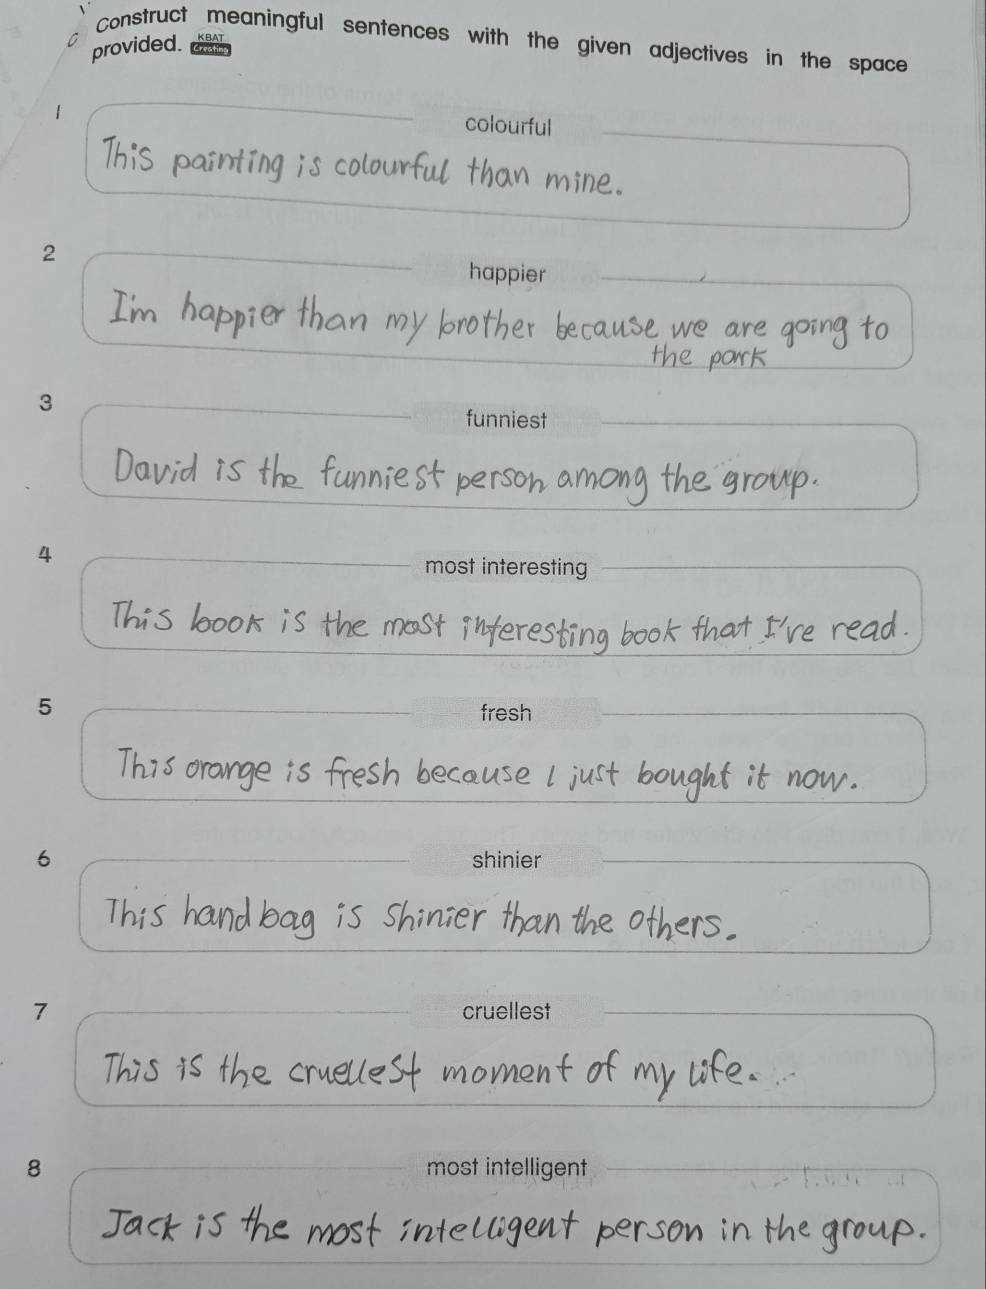 C Construct meaningful sentences with the given adjectives in the space
provided. KBAT Creating
1
colourful
This painting is colourful than mine.
2
happier
I'm happier than my brother because we are going to
the park
3
funniest
David is the funniest person among the group.
4
most interesting
This book is the most interesting book that I've read.
5
fresh
This orange is fresh because I just bought it now.
6
shinier
This handbag is shinier than the others.
7
cruellest
This is the cruellest moment of my life.
8
most intelligent
Jack is the most intelligent person in the group.